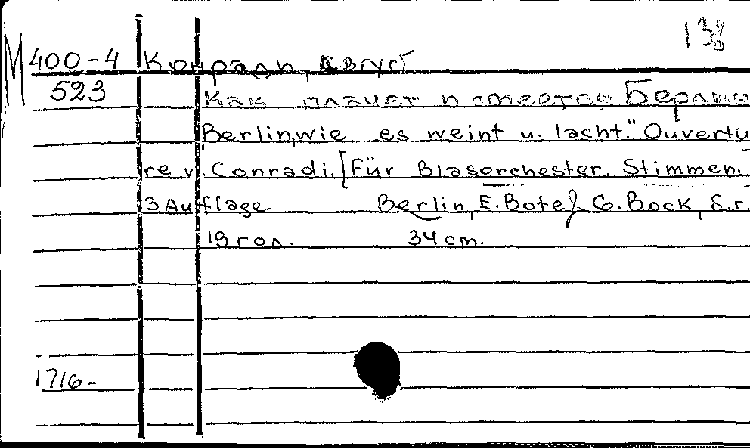 138
М 400-4 Конради, Август
523 Как плачет и смеется Берлин
"Berlin, wie es weint u. lacht." Ouvertu
re v. Conradi. [Für Blasorchester. Stimmen.
3 Auflage Berlin, E. Bote & G. Bock, S. r.
19 гол. 34 cm.
1716-